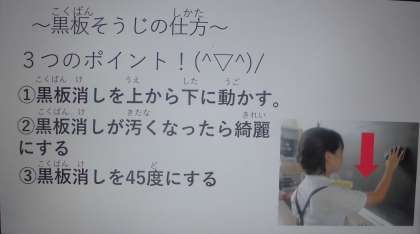 ～黒板そうじの仕方～
３つのポイント！(^▽^)/
①黒板消しを上から下に動かす。
②黒板消しが汚くなったら綺麗
にする
③黒板消しを45度にする